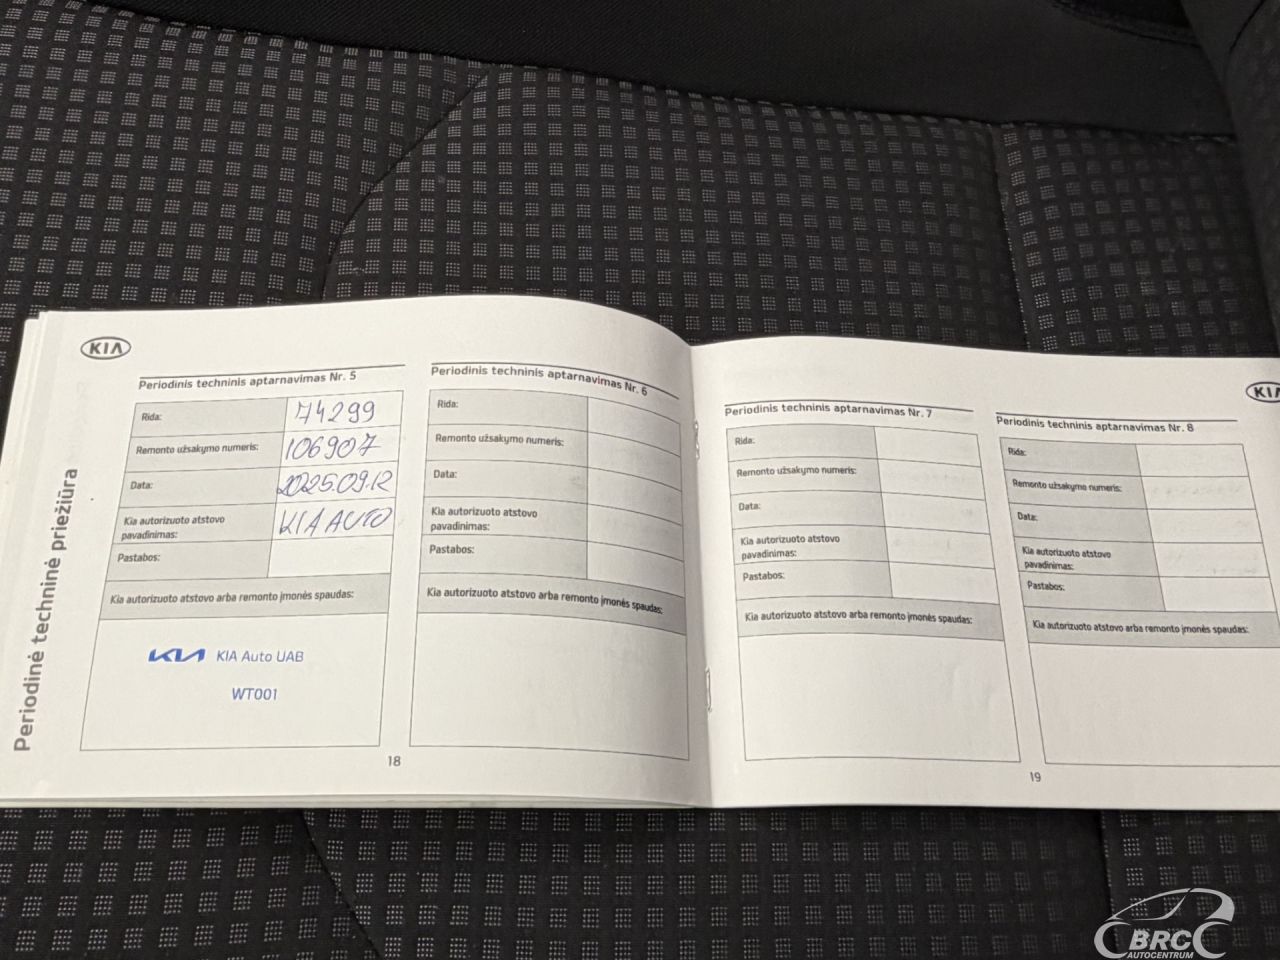 KIA
Periodinė techninė priežiūra
Periodinis techninis aptarnavimas Nr. 5
Rida: 74299
Remonto užsakymo numeris: 106907
Data: 2025.09.12
Kia autorizuoto atstovo
pavadinimas: KIA AUTO
Pastabos:
Kia autorizuoto atstovo arba remonto įmonės spaudas:
KIA KIA Auto UAB
WT001
Periodinis techninis aptarnavimas Nr. 6
Rida:
Remonto užsakymo numeris:
Data:
Kia autorizuoto atstovo
pavadinimas:
Pastabos:
Kia autorizuoto atstovo arba remonto įmonės spaudas:
18
Periodinis techninis aptarnavimas Nr. 7
Rida:
Remonto užsakymo numeris:
Data:
Kia autorizuoto atstovo
pavadinimas:
Pastabos:
Kia autorizuoto atstovo arba remonto įmonės spaudas:
KIA
Periodinis techninis aptarnavimas Nr. 8
Rida:
Remonto užsakymo numeris:
Data:
Kia autorizuoto atstovo
pavadinimas:
Pastabos:
Kia autorizuoto atstovo arba remonto įmonės spaudas:
19
BRC
AUTOCENTRUM